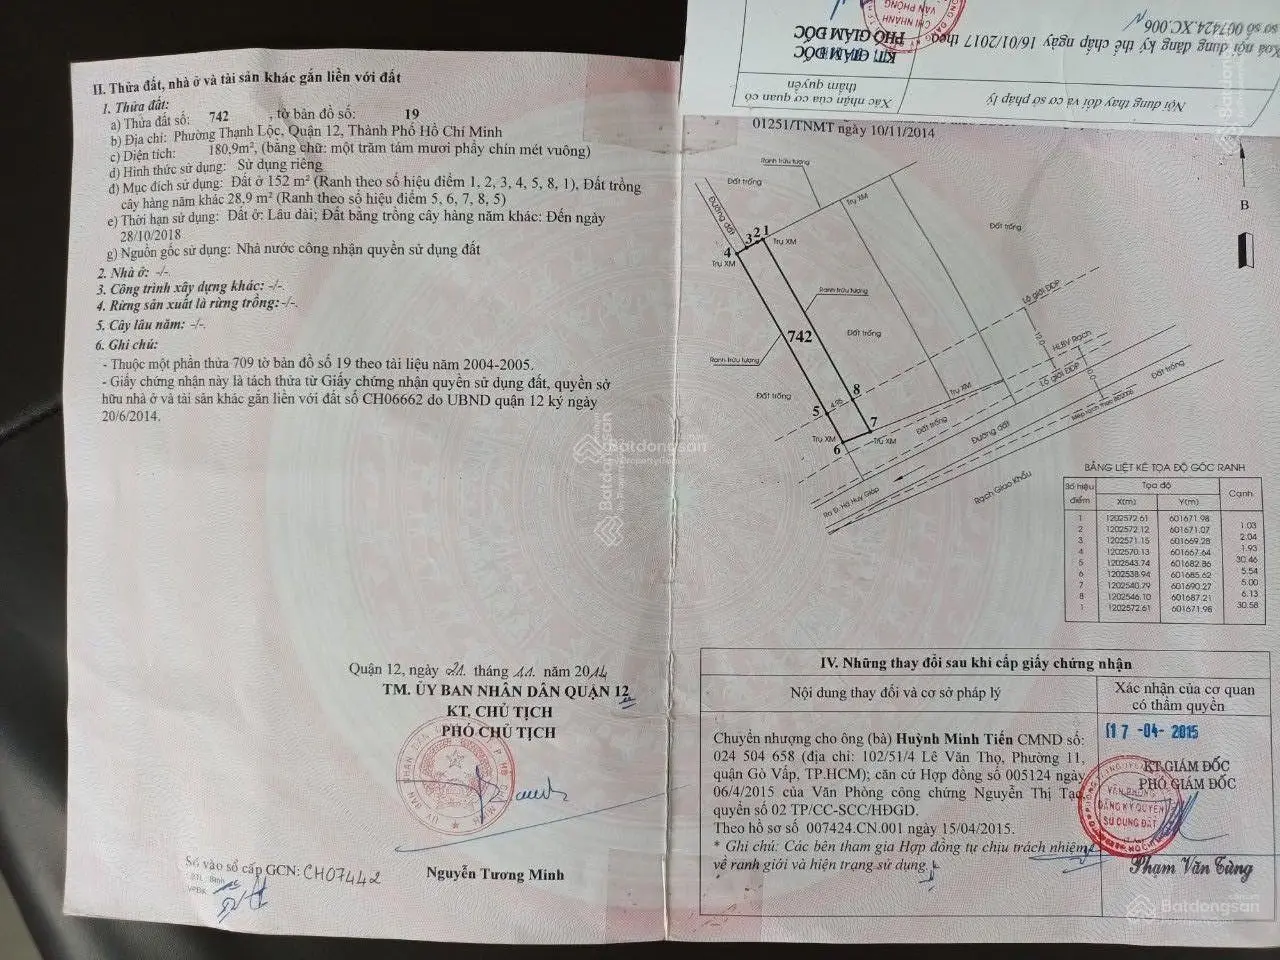 II. Thửa đất, nhà ở và tài sản khác gắn liền với đất
1. Thửa đất:
a) Thửa đất số: 742 , tờ bản đồ số: 19
b) Địa chỉ: Phường Thạnh Lộc, Quận 12, Thành Phố Hồ Chí Minh
c) Diện tích: 180,9m², (bằng chữ: một trăm tám mươi phẩy chín mét vuông)
d) Hình thức sử dụng: Sử dụng riêng
đ) Mục đích sử dụng: Đất ở 152 m² (Ranh theo số hiệu điểm 1, 2, 3, 4, 5, 8, 1), Đất trồng
cây hàng năm khác 28,9 m² (Ranh theo số hiệu điểm 5, 6, 7, 8, 5)
e) Thời hạn sử dụng: Đất ở: Lâu dài; Đất bằng trồng cây hàng năm khác: Đến ngày
28/10/2018
g) Nguồn gốc sử dụng: Nhà nước công nhận quyền sử dụng đất
2. Nhà ở: -/-.
3. Công trình xây dựng khác: -/-.
4. Rừng sản xuất là rừng trồng:-/-.
5. Cây lâu năm: -/-.
6. Ghi chú:
- Thuộc một phần thửa 709 tờ bản đồ số 19 theo tài liệu năm 2004-2005.
- Giấy chứng nhận này là tách thửa từ Giấy chứng nhận quyền sử dụng đất, quyền sở
hữu nhà ở và tài sản khác gắn liền với đất số CH06662 do UBND quận 12 ký ngày
20/6/2014.
Quận 12, ngày 21 tháng 11 năm 2014
TM. ỦY BAN NHÂN DÂN QUẬN 12
KT. CHỦ TỊCH
PHÓ CHỦ TỊCH
Nguyễn Tương Minh
Số vào sổ cấp GCN: CH07442
Nội dung thay đổi và cơ sở pháp lý
Xác nhận của cơ quan có
thẩm quyền
Xoá nội dung đăng ký thế chấp ngày 16/01/2017 theo
hồ sơ số 007424.XC.006
KT. GIÁM ĐỐC
PHÓ GIÁM ĐỐC
CHI NHÁNH
VĂN PHÒNG
01251/TNMT ngày 10/11/2014
Ranh trừu tượng
Đất trống
Trụ XM
Đường đất
Đất trống
B
4 3 2 1
Trụ XM
Trụ XM
Ranh trừu tượng
Lộ giới ĐDP
742
Đất trống
12.0
HLBV Rạch
Ranh trừu tượng
Đất trống
Trụ XM
Lộ giới ĐDP
Đất trống
8
4.95
5
7
Trụ XM
6
Trụ XM
Đất trống
Đường đất
Rạch Giao Khẩu
Ra Đ. Hà Huy Giáp
BẢNG LIỆT KÊ TỌA ĐỘ GÓC RANH
Số hiệu điểm Tọa độ Cạnh
X(m) Y(m)
1 1202572.61 601671.98
1.03
2 1202572.12 601671.07
2.04
3 1202571.15 601669.28
1.93
4 1202570.13 601667.64
30.46
5 1202543.74 601682.86
5.54
6 1202538.94 601685.62
5.00
7 1202540.79 601690.27
6.13
8 1202546.10 601687.21
30.58
1 1202572.61 601671.98
IV. Những thay đổi sau khi cấp giấy chứng nhận
Nội dung thay đổi và cơ sở pháp lý
Xác nhận của cơ quan
có thẩm quyền
Chuyển nhượng cho ông (bà) Huỳnh Minh Tiến CMND số:
024 504 658 (địa chỉ: 102/51/4 Lê Văn Thọ, Phường 11,
quận Gò Vấp, TP.HCM); căn cứ Hợp đồng số 005124 ngày
06/4/2015 của Văn Phòng công chứng Nguyễn Thị Tạc,
quyển số 02 TP/CC-SCC/HĐGD.
Theo hồ sơ số 007424.CN.001 ngày 15/04/2015.
* Ghi chú: Các bên tham gia Hợp đồng tự chịu trách nhiệm
về ranh giới và hiện trạng sử dụng
17 -04- 2015
KT.GIÁM ĐỐC
PHÓ GIÁM ĐỐC
VĂN PHÒNG
ĐĂNG KÝ QUYỀN
SỬ DỤNG ĐẤT
Phạm Văn Tùng
Batdongsan
by PropertyGuru
Batdongsan